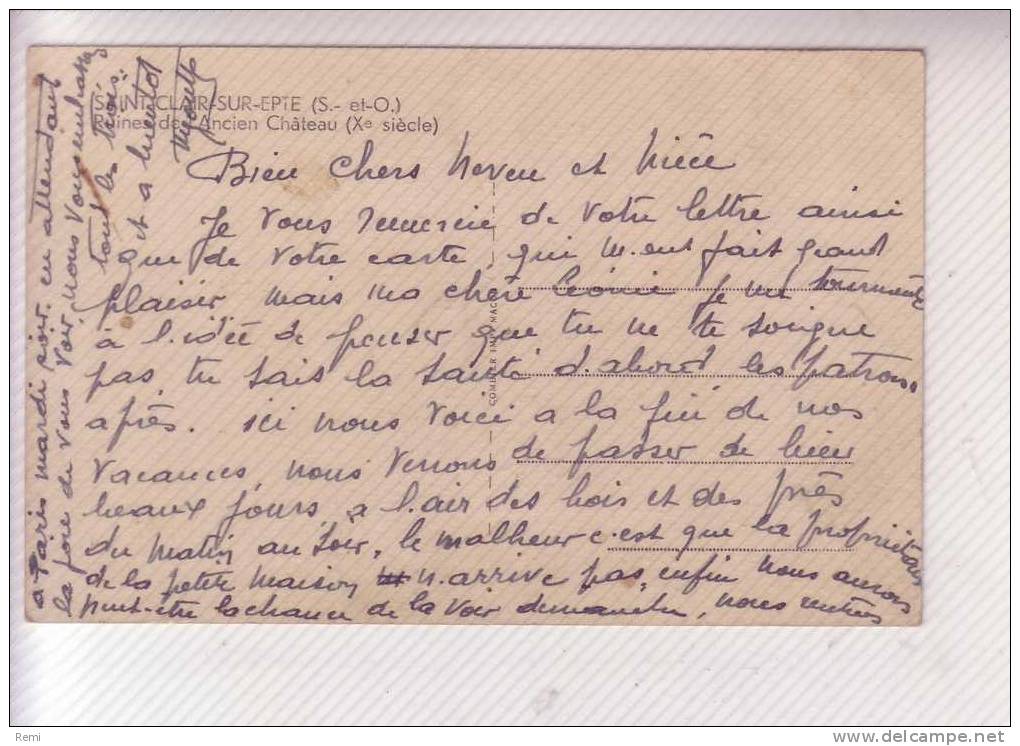 SAINT-CLAIR-SUR-EPTE (S.- et-O.)
Ruines de l'Ancien Château (Xe siècle)
Bien Chers Neveu et Nièce
Je vous remercie de votre lettre ainsi
que de votre carte, qui m.ont fait grand
plaisir, mais ma chère Léonie je me tourmente
à l.idée de penser que tu ne te soigne
pas, tu sais la santé d.abord, les patrons
après. ici nous voici a la fin de nos
vacances, nous venons de passer de bien
beaux jours, a l.air des bois et des près
du matin au soir, le malheur c.est que la propriétaire
de la petite maison n.arrive pas, enfin nous aurons
peut-être la chance de la voir dimanche, nous rentrons
a Paris mardi soir. en attendant
la joie de vous voir, nous vous embrassons
tout les trois.
et a bientôt
COMBIER IMP. MACON
Remi
www.delcampe.net